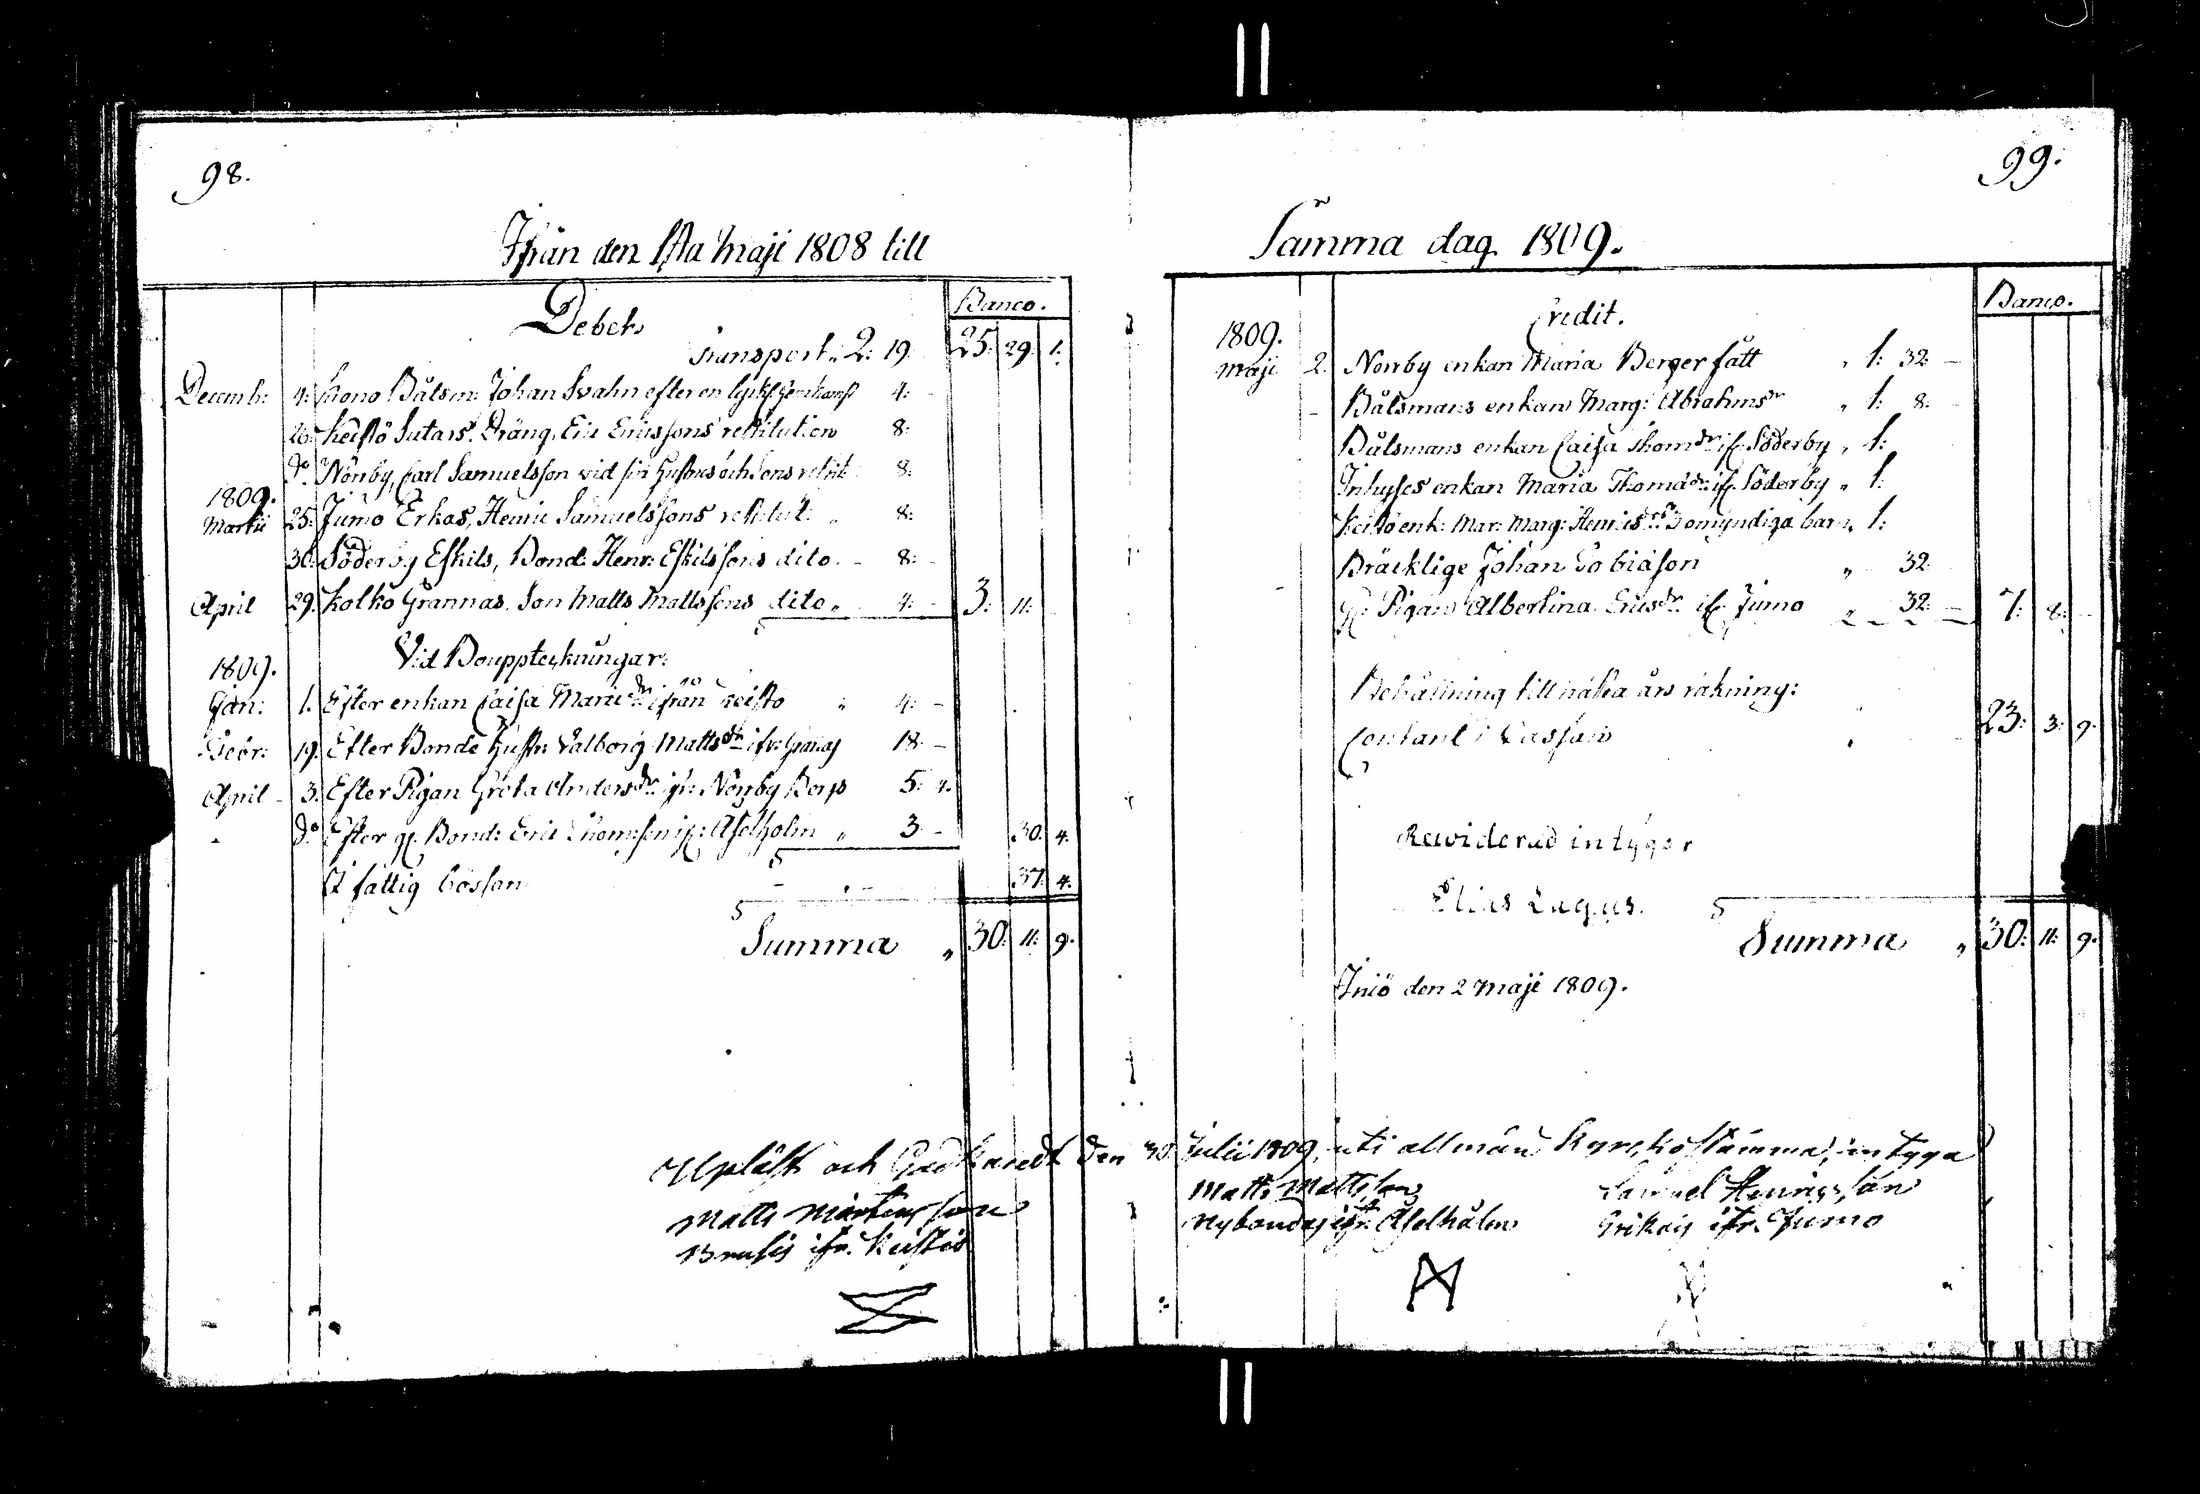 98.
Ifrån den 1sta Maji 1808 till
Debet.
Banco.
Transport „ 2: 19. 25: 29: 1:
Decemb: 4: Krono Båtsm: Johan Svahn efter en
26: Keistö Sutars Dräng, Eric Ericssons restitution 8:
do Norrby, Carl Samuelsson vid sin Hustrus och Sons restit: 8:
1809.
Martii 25: Jumo Erkas, Henric Samuelssons restitut: „ 8:
30: Söderby Eskils, Bond: Henr: Eskilssons dito. 8:
April 29: Kolko Grannas, Son Matts Mattssons dito „ 4: 3: 11:
Vid Bouppteckningar:
1809.
Jan: 1. Efter enkan Caisa Mariædr: ifrån Keisto „ 4: –
Febr: 19. Efter Bonde Hustr: Valborg Mattsdr: ifr: 18: –
April 3. Efter Pigan Greta Andersdr: ifr: Norrby 5: 4.
do Efter gl. Bond: Eric Thomsson if: Åselholm „ 3. – 30. 4.
I fattig bössan 37. 4.
Summa „ 30: 11: 9.
99.
Samma dag 1809.
Credit.
Banco.
1809.
Maji 2. Norrby enkan Maria Berger fått „ 1: 32: –
– Båtsmans enkan Marg: Abrahmsdr „ 1: 8:
Båtsmans enkan Caisa Thomdr: if. Söderby „ 1:
Inhyses enkan Maria Thomædr: if. Söderby „ 1:
Keistö enk: Mar: Marg: Henricsdrs omyndiga barn „ 1:
Bräcklige Johan Tobiasson „ 32:
gl. Pigan Albertina Ericsdr: if. Jumo „ 32: – 7: 8: –
Behållning till nästa års räkning:
Contant i Cassan 23: 3: 9.
Rewiderad intygar
Elias Lagus.
Summa „ 30: 11: 9.
Iniö den 2 Maji 1809.
Upläst och Godkändt den 30 Julii 1809, uti allmän Kyrckostämma, intyga
Matts Mårtensson
Brusis ifr. Keistiö
Matts Mattsson
Nybondas ifr. Åselholm
Samuel Henricsson
Erikas ifr. Jumo